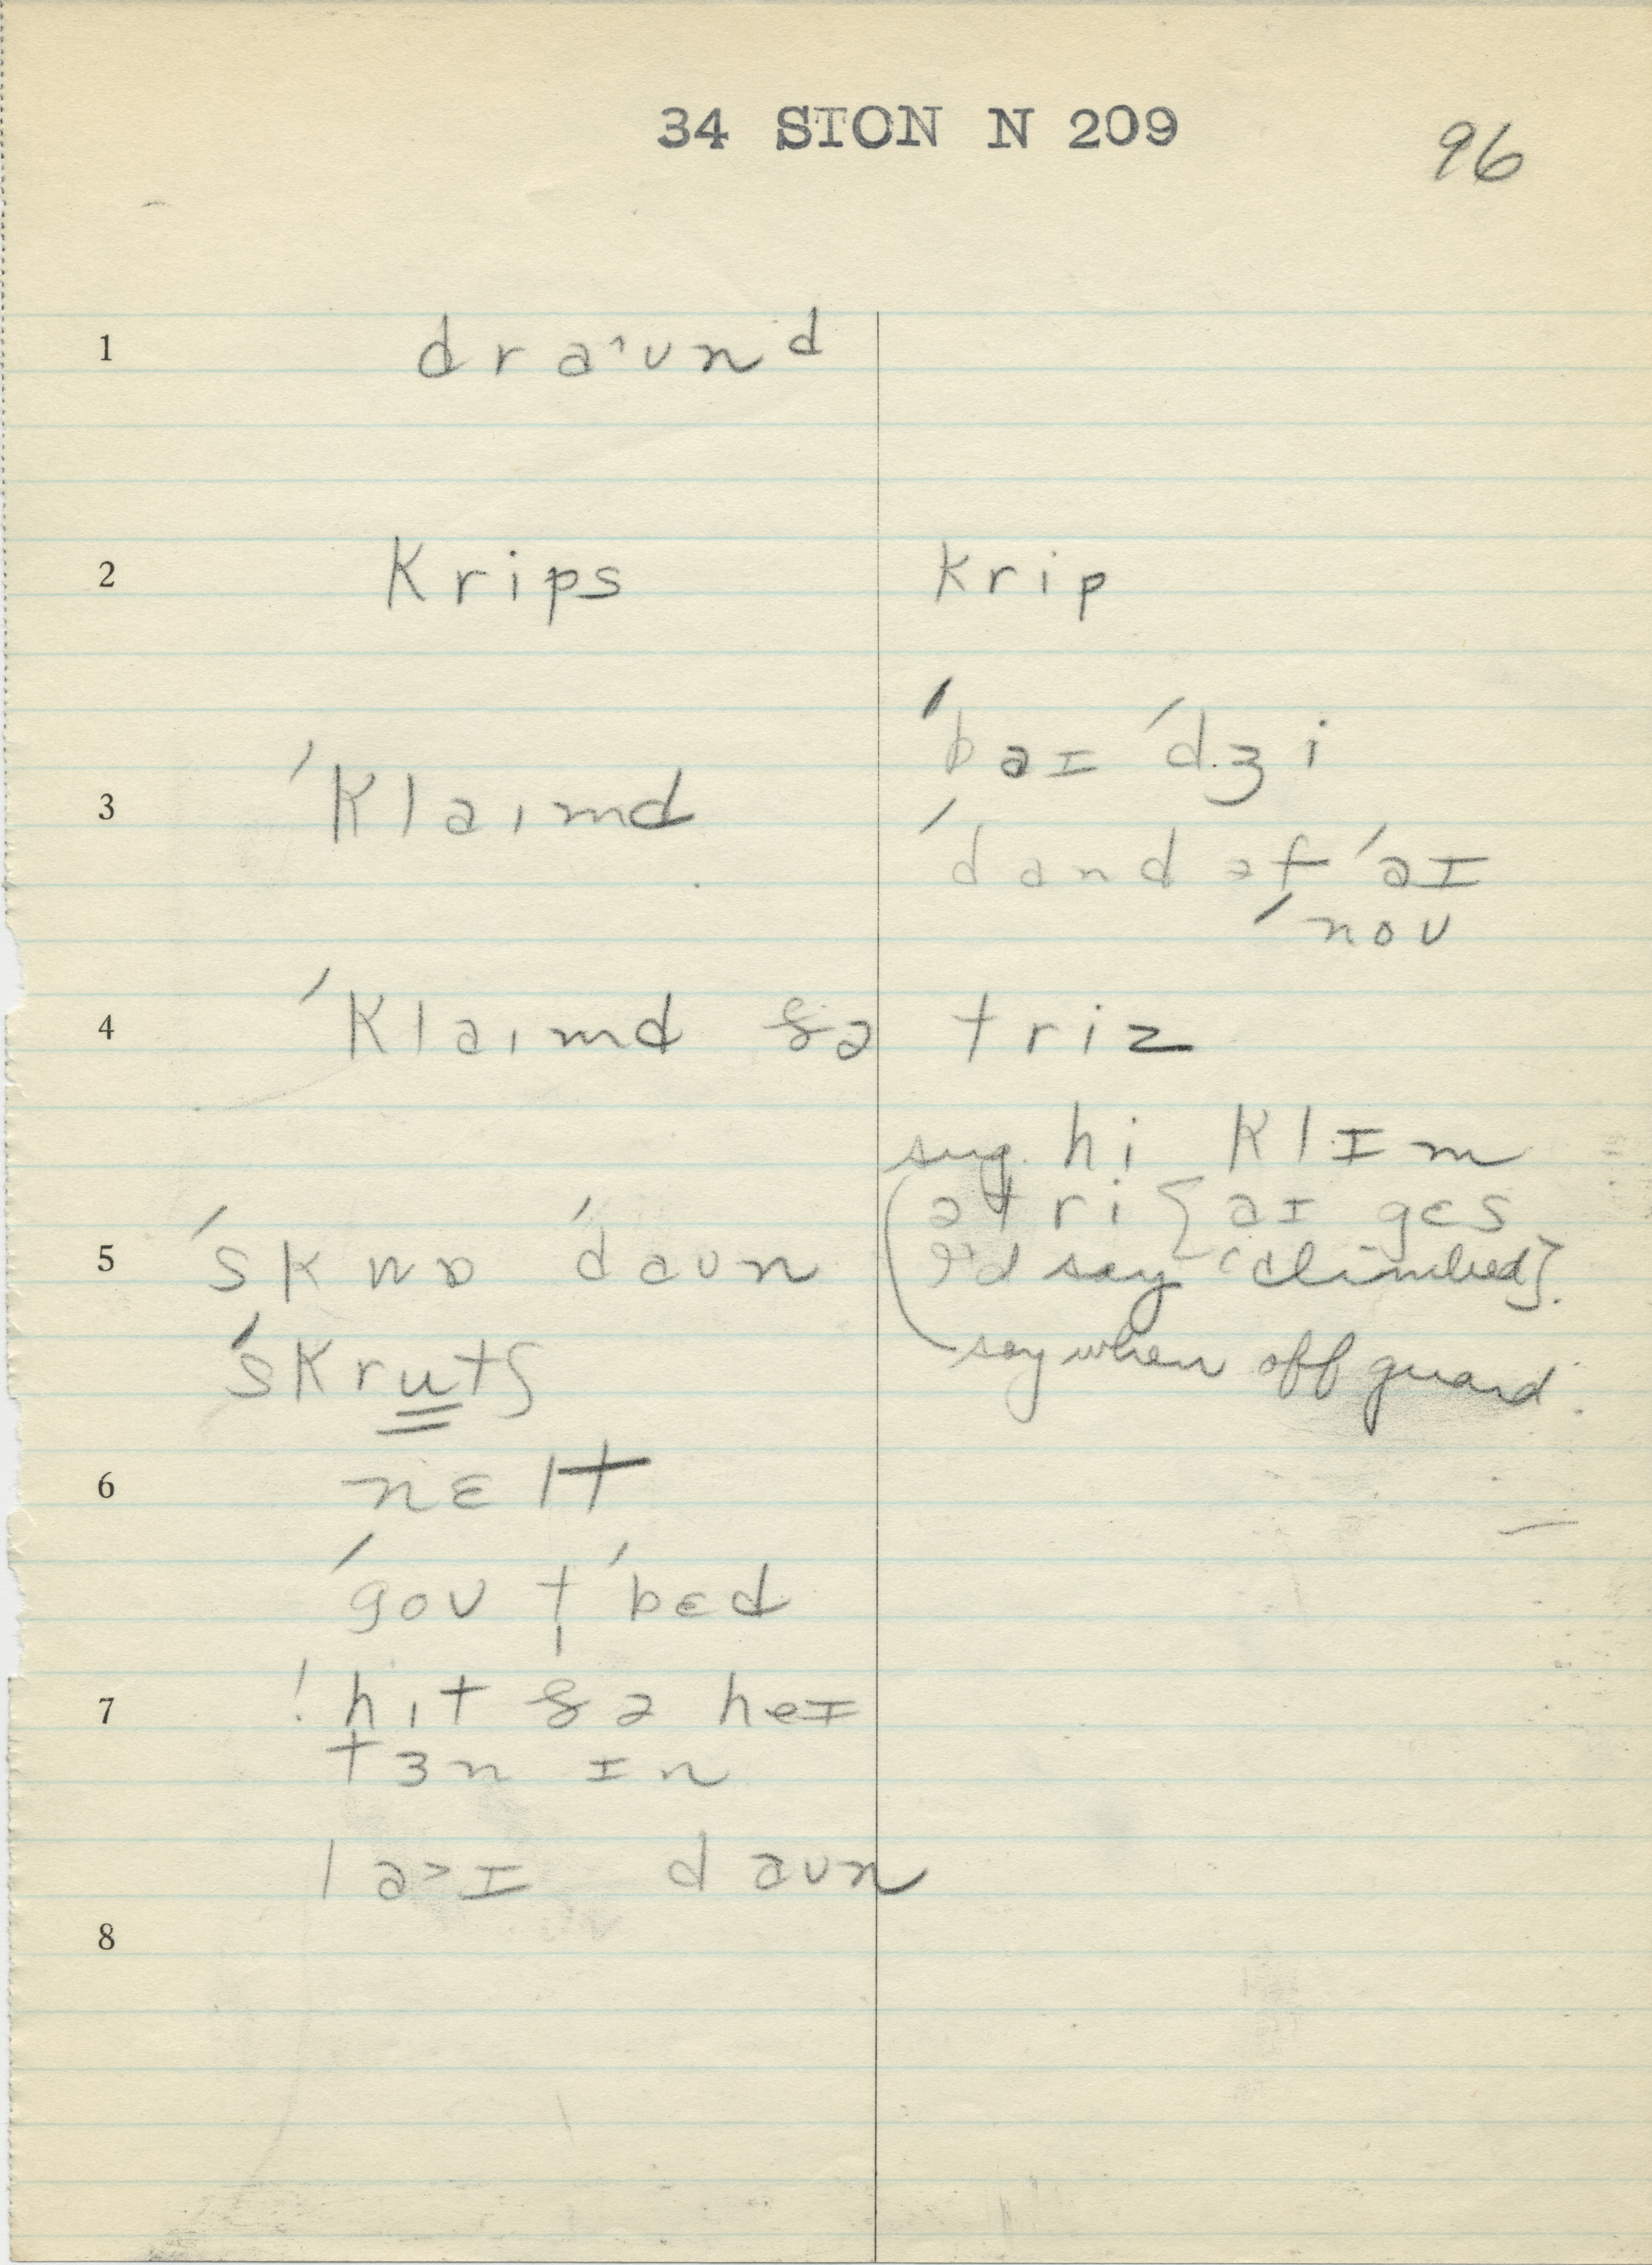 34 STON N 209
96
1 dra˄ʊnᵈ
2 krips krip
ˈbaɪ ˈdʒi
3 ˈklaɪmd
ˈdand əf ˈaɪ
ˈnoʊ
4 ˈklaɪmd ðə triz
sug. hi klɪm
ə tri { aɪ gɛs
5 ˈskwɒ ˈdaʊn I'd say 'climbed}.
ˈskrutʃ say when off guard.
6 nɛlt
ˈgoʊ t̩ ˈbɛd
7 ˈhɪt ðə heɪ
tɜn ɪn
la˃ɪ daʊn
8